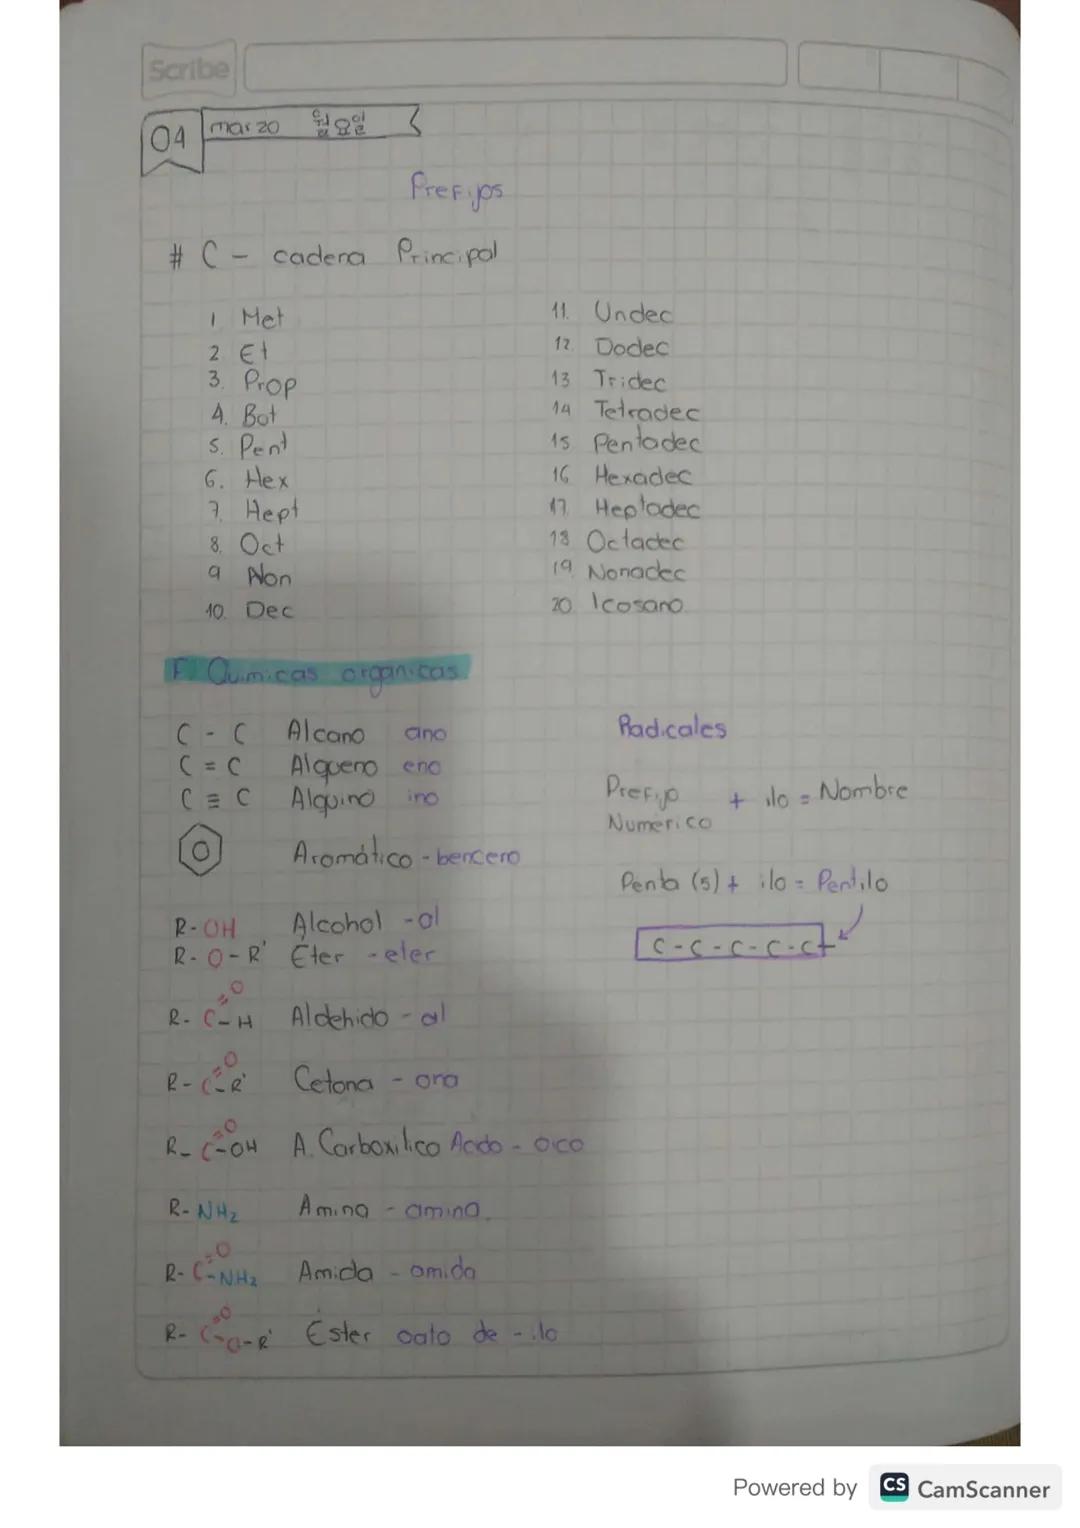 Scribe
04 marzo 월요일
Prefijos
# C - cadena Principal
1 Met
2 Et
3. Prop
4. Bot
5. Pent
6. Hex
7. Hept
8. Oct
9 Non
10. Dec
11. Undec
12. Dodec
13 Tridec
14 Tetradec
15 Pentadec
16 Hexadec
17. Heptadec
18 Octadec
19. Nonadec
20. Icosano
F. Quimicas organicas
C - C Alcano ano
C = C Alqueno eno
C ≡ C Alquino ino
Aromático - benceno
R - OH Alcohol - ol
R - O - R' Éter - eter
R - C=O - H Aldehido - al
R - C=O - R' Cetona - ona
R - C=O - OH A. Carboxilico Acido - oico
R - NH2 Amina - amina.
R - C=O - NH2 Amida - amida
R - C=O - O - R' Éster oato de - ilo
Radicales
Prefijo + ilo = Nombre
Numérico
Penta (5) + ilo = Pentilo
C - C - C - C - C +
Powered by CS CamScanner